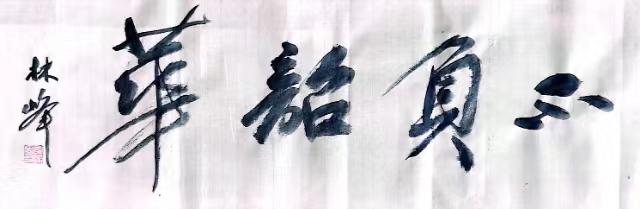 不負韶華
林峰